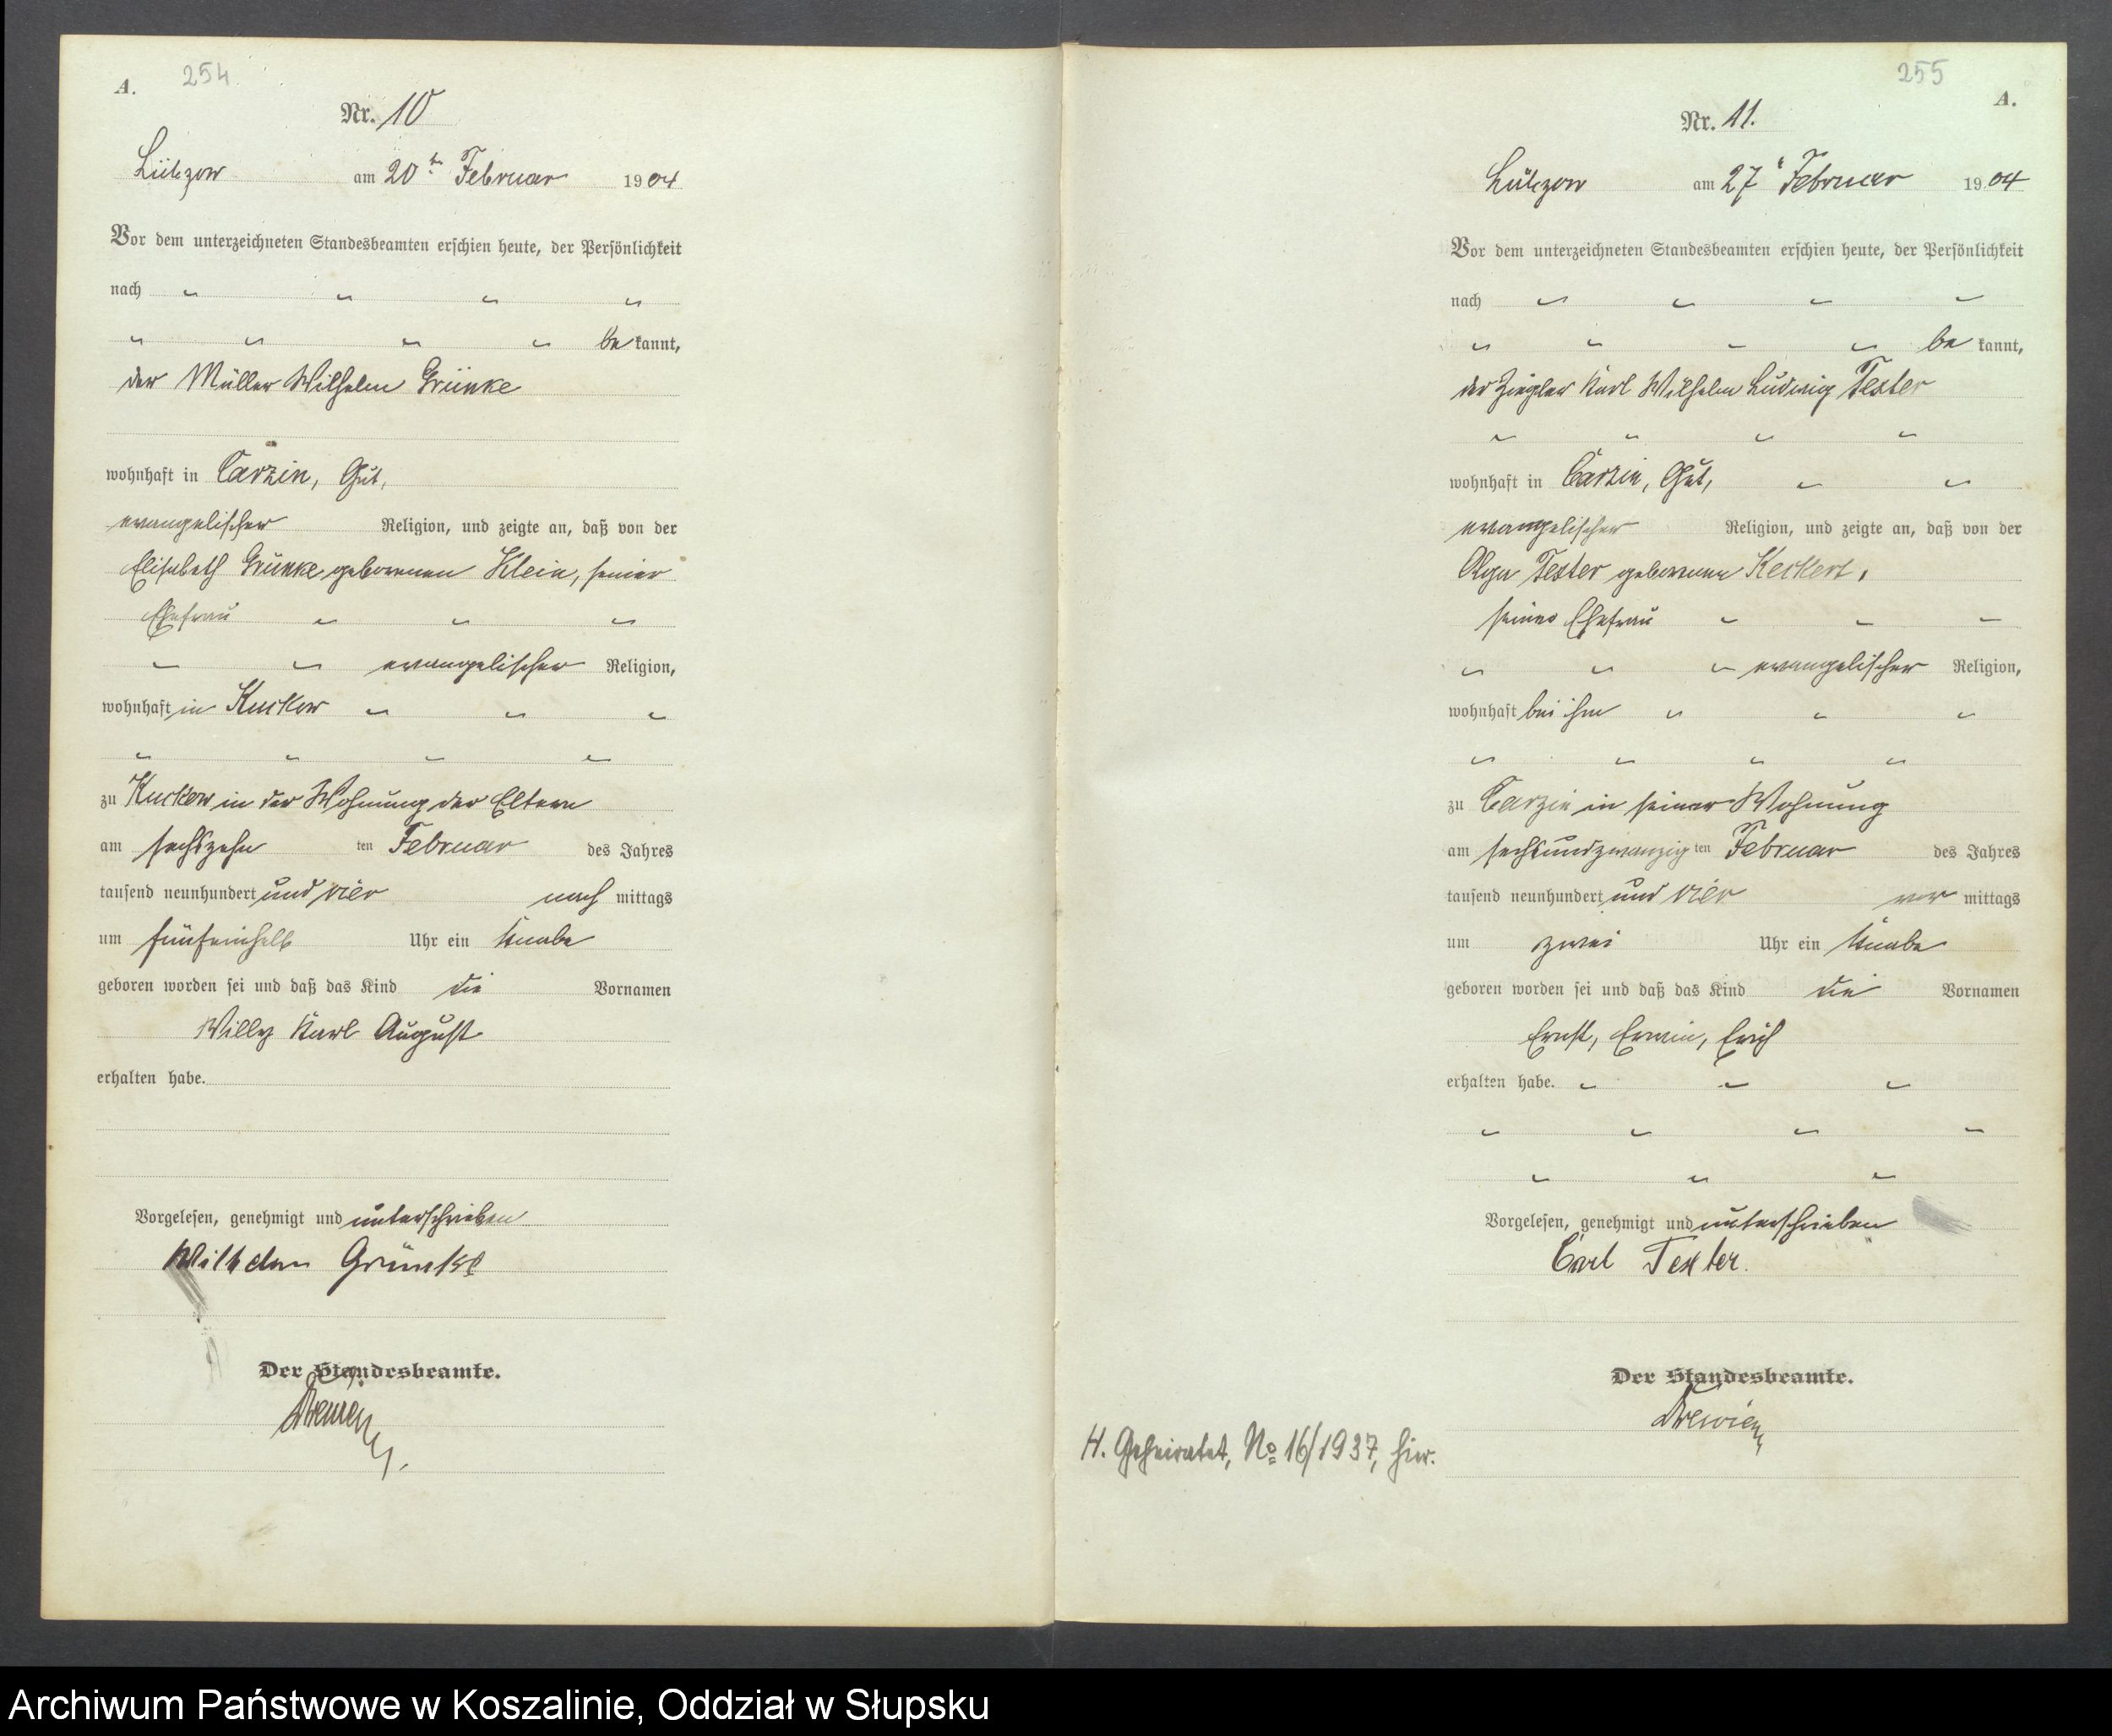 A.
254
Nr. 10
Lützow am 20ten Februar 1904
Vor dem unterzeichneten Standesbeamten erschien heute, der Persönlichkeit
nach
be kannt,
der Müller Wilhelm Grünke
wohnhaft in Carzin, Gut,
evangelischer Religion, und zeigte an, daß von der
Elisabeth Grünke geborenen Klein, seiner
Ehefrau
evangelischer Religion,
wohnhaft in Kuckow
zu Kuckow in der Wohnung der Eltern
am sechszehn ten Februar des Jahres
tausend neunhundert und vier nach mittags
um fünfeinhalb Uhr ein Knabe
geboren worden sei und daß das Kind die Vornamen
Willy Karl August
erhalten habe.
Vorgelesen, genehmigt und unterschrieben
Wilhelm Grünke
Der Standesbeamte.
255
A.
Nr. 11.
Lützow am 27t Februar 1904
Vor dem unterzeichneten Standesbeamten erschien heute, der Persönlichkeit
nach
be kannt,
der Ziegler Karl Wilhelm Ludwig Texter
wohnhaft in Carzin, Gut,
evangelischer Religion, und zeigte an, daß von der
Olga Texter geborenen Keckert,
seiner Ehefrau
evangelischer Religion,
wohnhaft bei ihm
zu Carzin in seiner Wohnung
am sechsundzwanzig ten Februar des Jahres
tausend neunhundert und vier vor mittags
um zwei Uhr ein Knabe
geboren worden sei und daß das Kind die Vornamen
Ernst, Erwin, Erich
erhalten habe.
Vorgelesen, genehmigt und unterschrieben
Carl Texter.
Der Standesbeamte.
H. Geheiratet, No 16/1937, hier.
Archiwum Państwowe w Koszalinie, Oddział w Słupsku